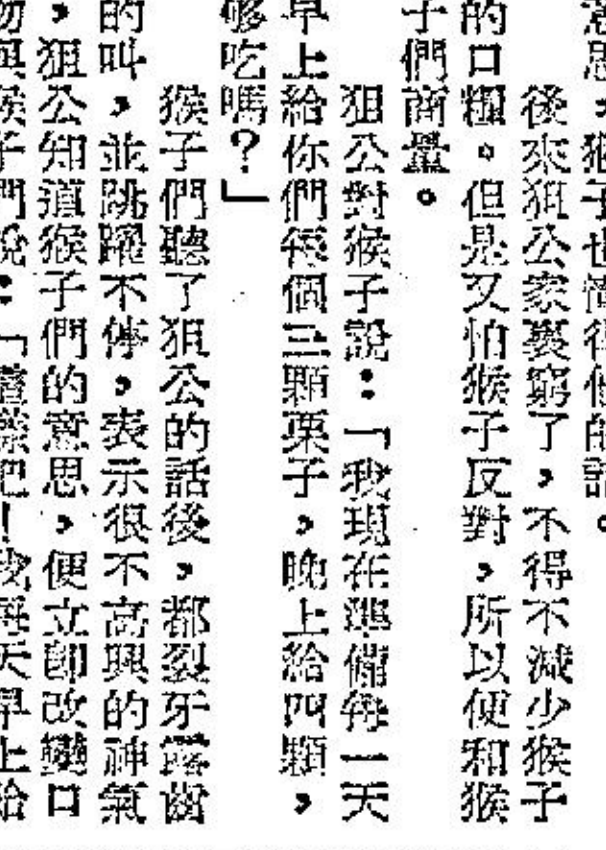 意思，猴子也懂得他的話。
後來狙公家裏窮了，不得不減少猴子
的口糧。但是又怕猴子反對，所以便和猴
子們商量。
狙公對猴子說：「我現在準備每一天
早上給你們每個三顆栗子，晚上給四顆，
够吃嗎？」
猴子們聽了狙公的話後，都裂牙露齒
的叫，並跳躍不停，表示很不高興的神氣
，狙公知道猴子們的意思，便立卽改變口
猴子們說：「這樣吧！我每天早上給